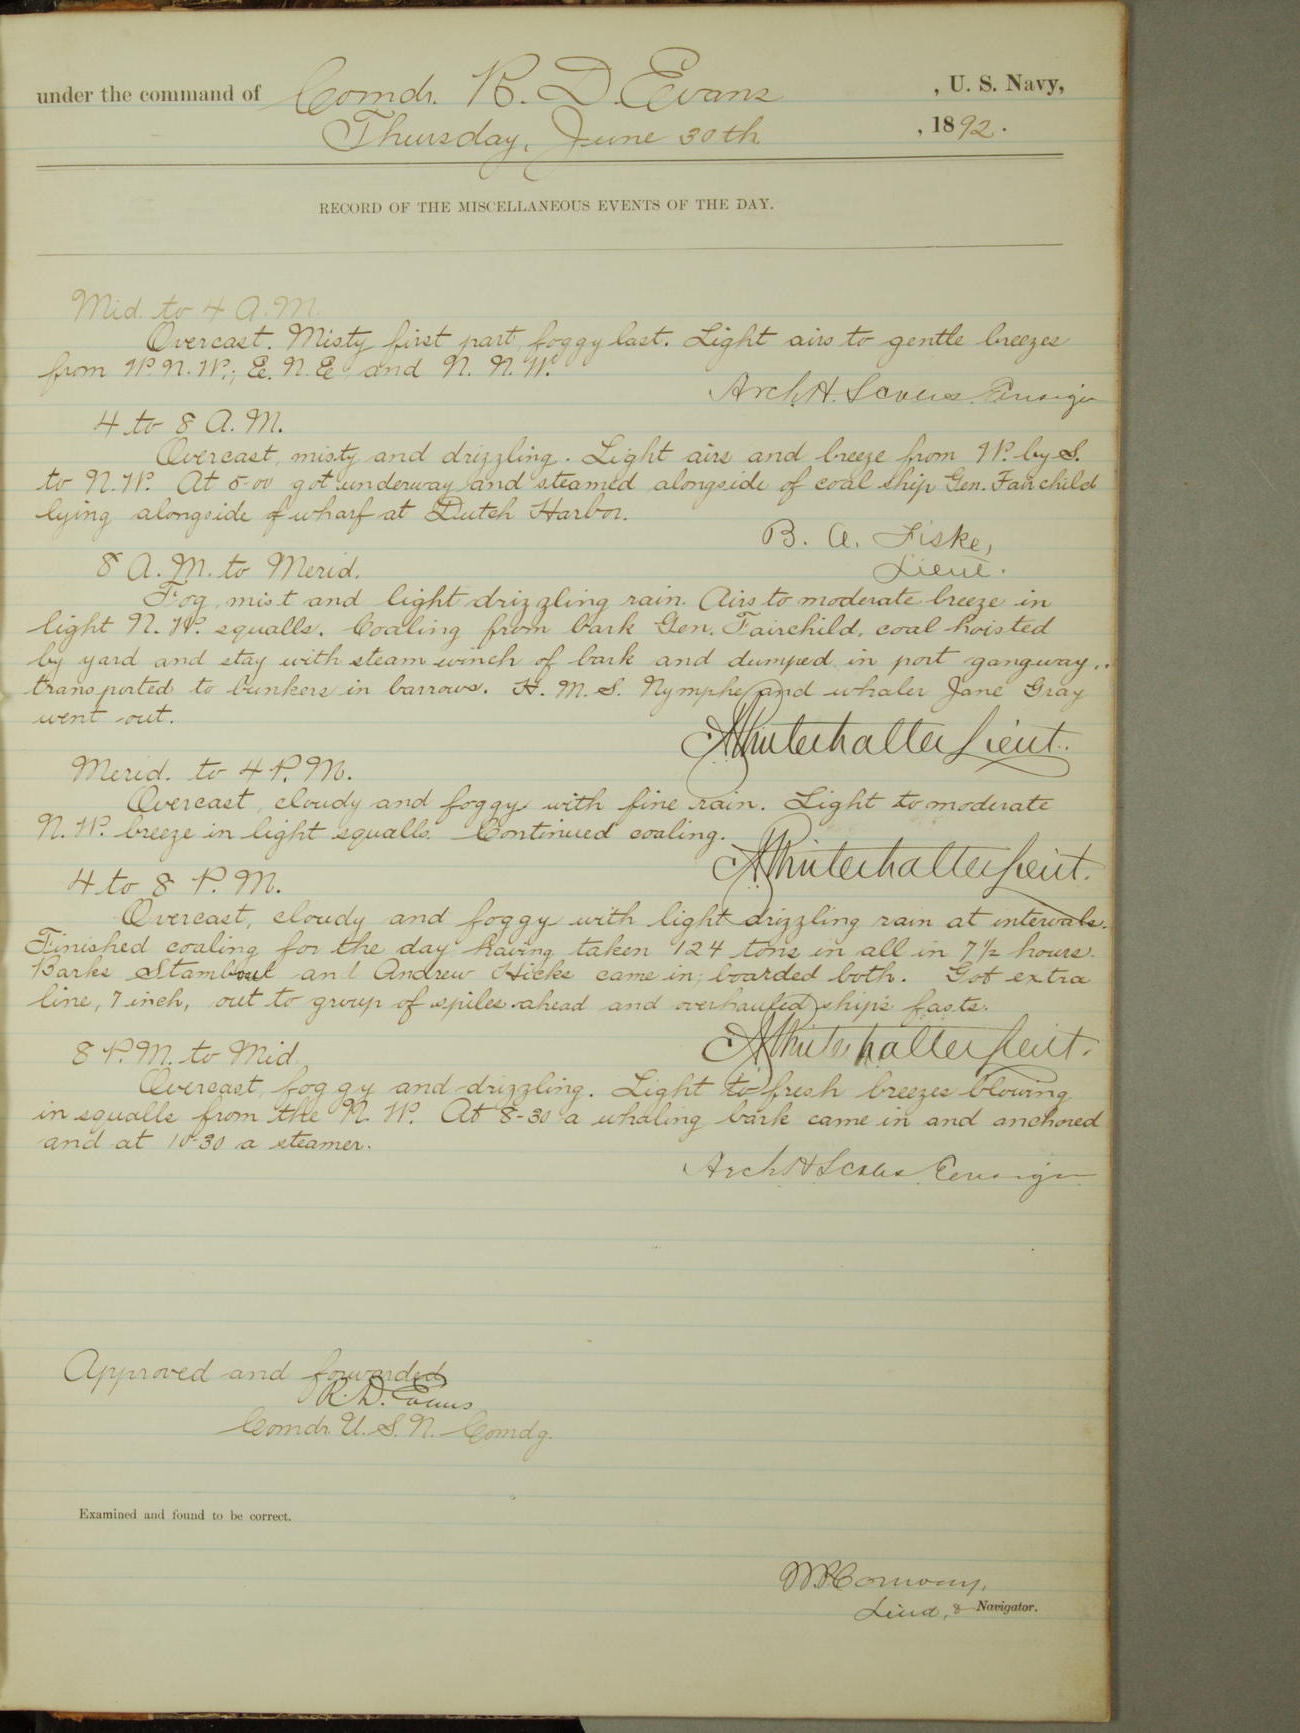 under the command of Comdr. R. D. Evans, U. S. Navy,
Thursday, June 30th, 1892.
RECORD OF THE MISCELLANEOUS EVENTS OF THE DAY.
Mid. to 4 A.M.
Overcast. Misty first part, foggy last. Light airs to gentle breezes
from W.N.W.; E.N.E. and N.N.W.
Arch. H. Scales Ensign
4 to 8 A.M.
Overcast, misty and drizzling. Light airs and breeze from W. by S.
to N.W. At 5-00 got underway and steamed alongside of coal ship Gen. Fairchild
lying alongside of wharf at Dutch Harbor.
B. A. Fiske,
Lieut.
8 A.M. to Merid.
Fog, mist and light drizzling rain. Airs to moderate breeze in
light N.W. squalls. Coaling from bark Gen. Fairchild, coal hoisted
by yard and stay with steam winch of bark and dumped in port gangway,
transported to bunkers in barrows. H. M. S. Nymphe and whaler Jane Gray
went out.
A G Winterhalter Lieut.
Merid. to 4 P.M.
Overcast, cloudy and foggy with fine rain. Light to moderate
N.W. breeze in light squalls. Continued coaling.
A G Winterhalter Lieut.
4 to 8 P.M.
Overcast, cloudy and foggy with light drizzling rain at intervals.
Finished coaling for the day having taken 124 tons in all in 7½ hours.
Barks Stamboul and Andrew Hicks came in; boarded both. Got extra
line, 7 inch, out to group of spiles ahead and overhauled ship's fasts.
A G Winterhalter Lieut.
8 P.M. to Mid.
Overcast, foggy and drizzling. Light to fresh breezes blowing
in squalls from the N.W. At 8-30 a whaling bark came in and anchored
and at 10-30 a steamer.
Arch H Scales Ensign
Approved and forwarded
R. D. Evans
Comdr. U. S. N. Comdg.
Examined and found to be correct.
Conway,
Lieut, & Navigator.